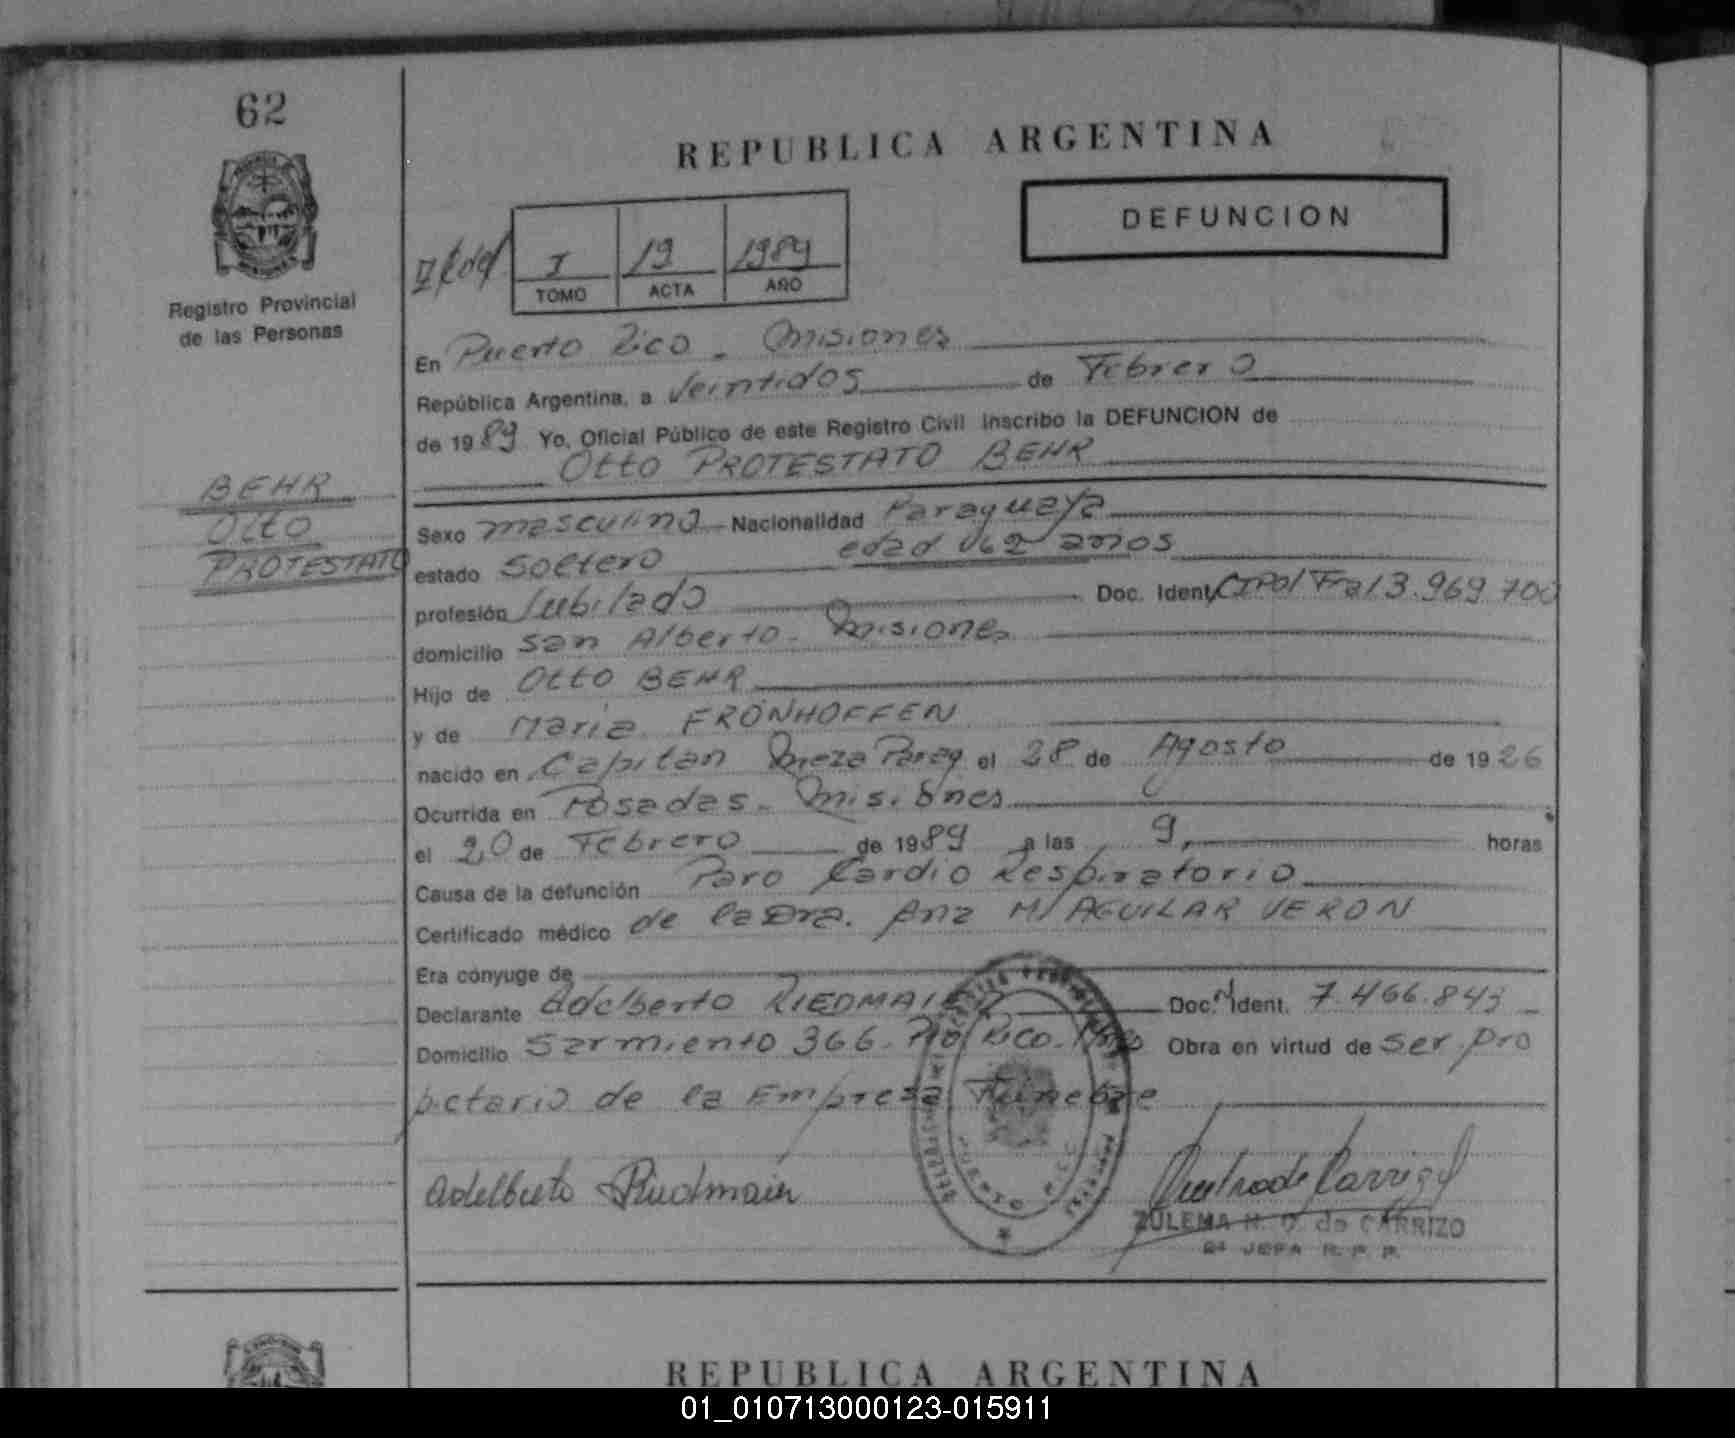 62
REPUBLICA ARGENTINA
DEFUNCION
I 19 1989
TOMO ACTA AÑO
Registro Provincial
de las Personas
En Puerto Rico - Misiones
República Argentina, a Veintidos de Febrero
de 1989 Yo, Oficial Público de este Registro Civil inscribo la DEFUNCION de
Otto PROTESTATO BEHR
BEHR
Otto
PROTESTATO
Sexo masculino Nacionalidad Paraguaya
estado soltero edad 62 años
profesión Jubilado Doc. Ident. 3.969.700
domicilio San Alberto - Misiones
Hijo de Otto BEHR
y de Maria FRONHOFFEN
nacido en Capitan Meza Parag el 28 de Agosto de 1926
Ocurrida en Posadas - Misiones
el 20 de Febrero de 1989 a las 9, horas
Causa de la defunción Paro Cardio Respiratorio
Certificado médico de la Dra. Ana M AGUILAR VERON
Era cónyuge de
Declarante Adelberto RIEDMAIER Doc. Ident. 7.466.843
Domicilio Sarmiento 366 - Pto Rico - Mnes Obra en virtud de ser pro
pietario de la Empresa Funebre
Adelberto Riedmaier
ZULEMA H. O. de CARRIZO
2ª JEFA R. P. P.
REPUBLICA ARGENTINA
01_010713000123-015911